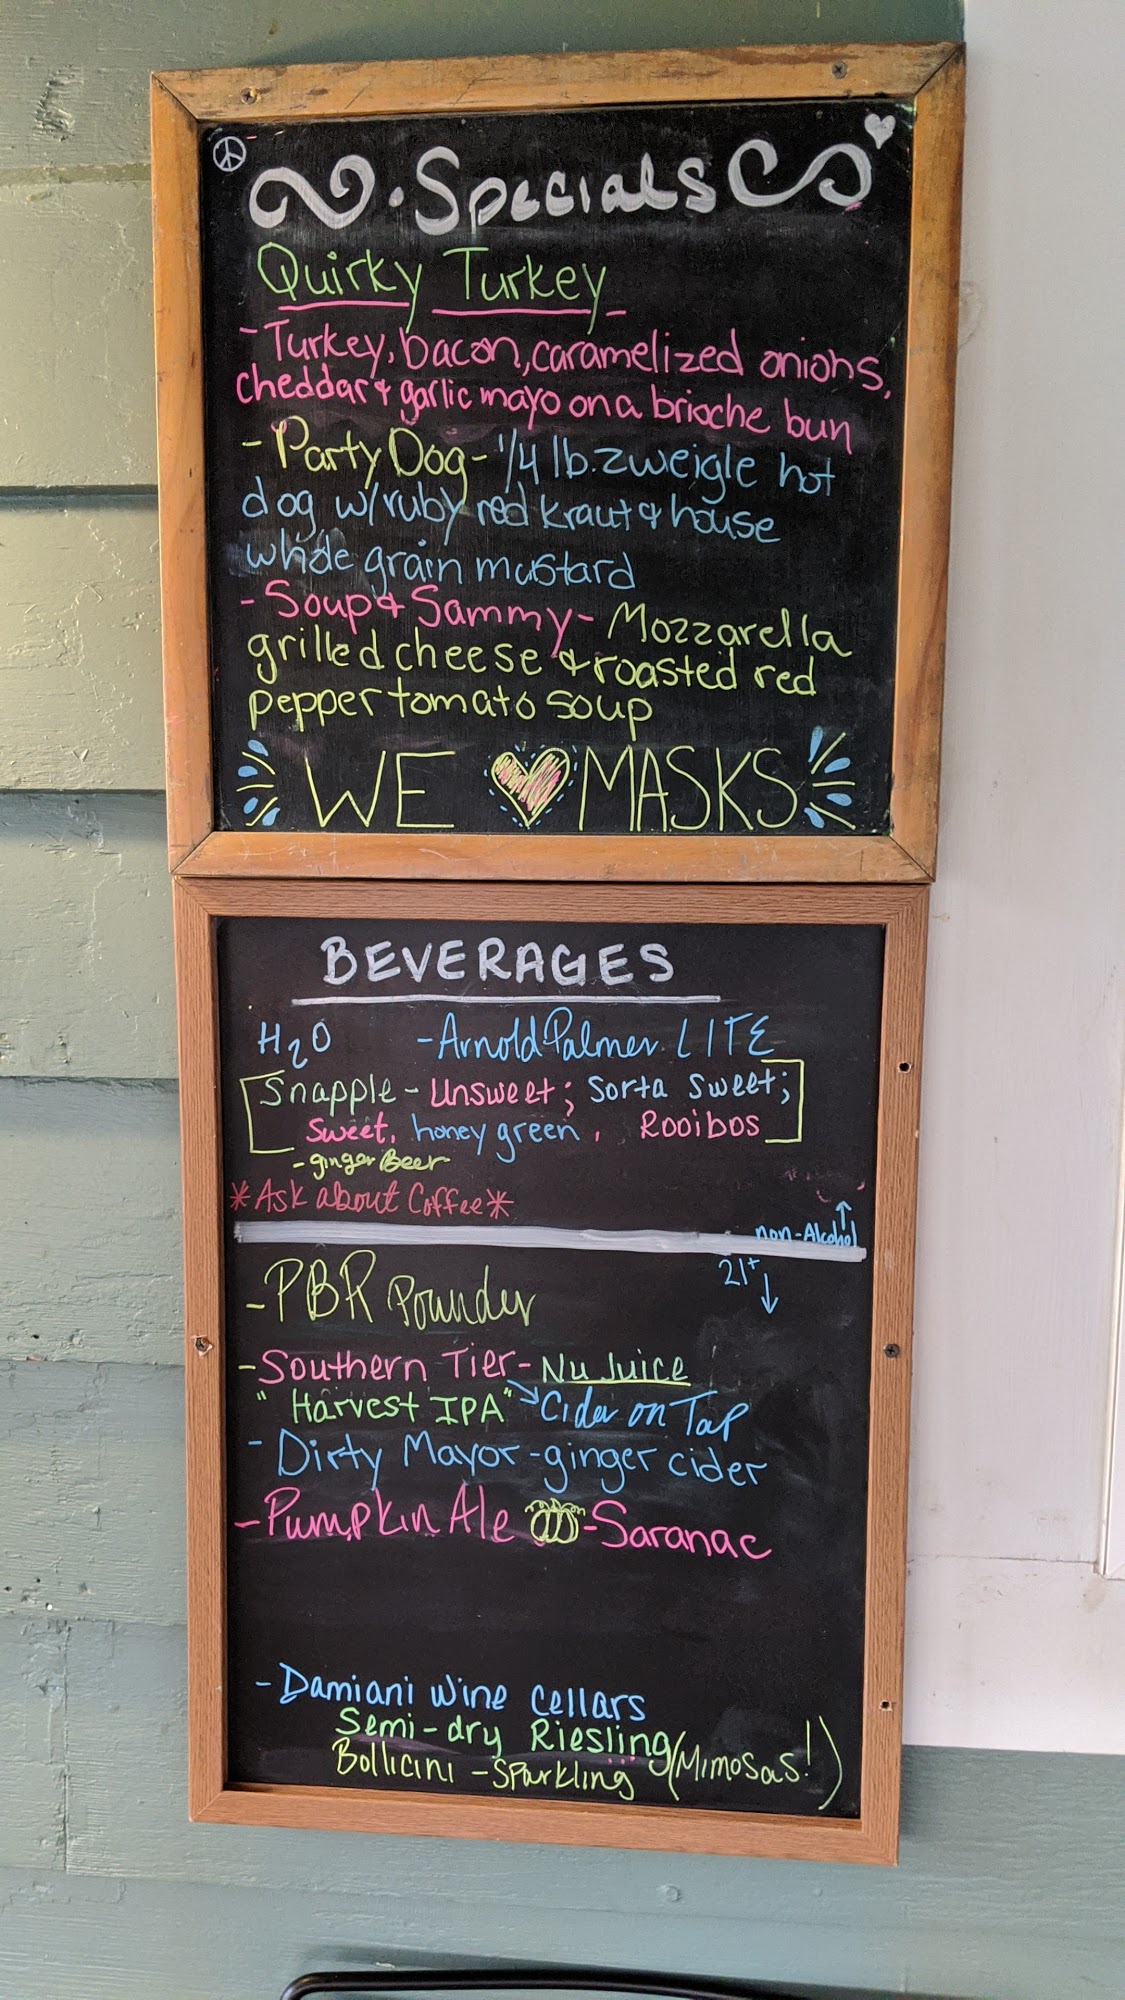 Specials
Quirky Turkey
-Turkey, bacon, caramelized onions,
cheddar & garlic mayo on a brioche bun
-Party Dog- 1/4 lb. zweigle hot
dog w/ruby red kraut & house
whole grain mustard
-Soup & Sammy- Mozzarella
grilled cheese & roasted red
pepper tomato soup
WE ♥ MASKS
BEVERAGES
H2O -Arnold Palmer LITE
Snapple - Unsweet; Sorta Sweet;
Sweet, honey green, Rooibos
-ginger Beer
*Ask about Coffee*
non-Alcohol ↑
21+ ↓
-PBR Pounder
-Southern Tier- Nu Juice
"Harvest IPA" → Cider on Tap
-Dirty Mayor-ginger cider
-Pumpkin Ale -Saranac
-Damiani Wine Cellars
Semi-dry Riesling
Bollicini -Sparkling (Mimosas!)